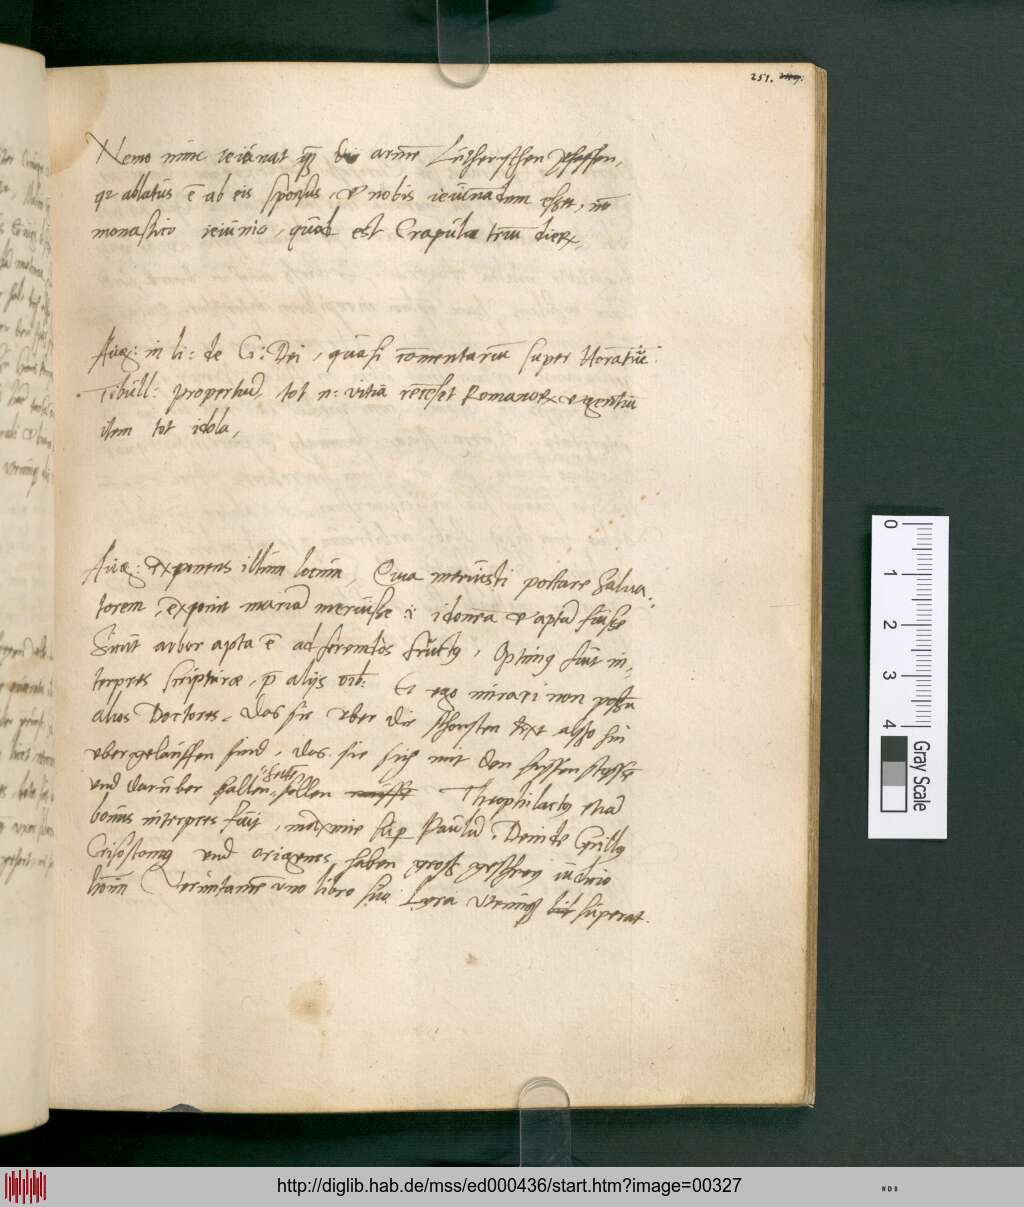 251. 249.
Nemo nunc ieiunat quam die arme Lutherischen pfaffen,
qz ablatus ē ab eis sponsus, et nobis ieiunadum esset, nō
monastico ieiunio, quod est Crapula triū dierꝝ,
Aug: in li: de Ci: Dei, quasi comentariū super Horatiū
Tibull: propertiū, tot n: vitia recēset Romanorꝝ et gentiū
item tot idola,
Aug: exponens illum locum, Quia meruisti portare Salua:
torem, exponit mariā meruisse i: idonea et aptā fuisse
Sicut arbor apta ē ad ferendos fructus, Optimus fuit in:
terpres scripturae, p̄ alijs oīb: Et ego mirari non possū
alios Doctores, das sie vber die schonsten text also hin
vbergelauffen sind, das sie sich mit den fussen
vnd daruber fallen solten Theophilactus etiā
bonus interpres fuit, maxime sup Paulū, Deinde Cyrillus
Crisostomus vnd origenes haben gross geschrey iudicio
Veruntamē vno libro suo Lyra vtrunque superat.
http://diglib.hab.de/mss/ed000436/start.htm?image=00327
0
1
2
3
4
Gray Scale